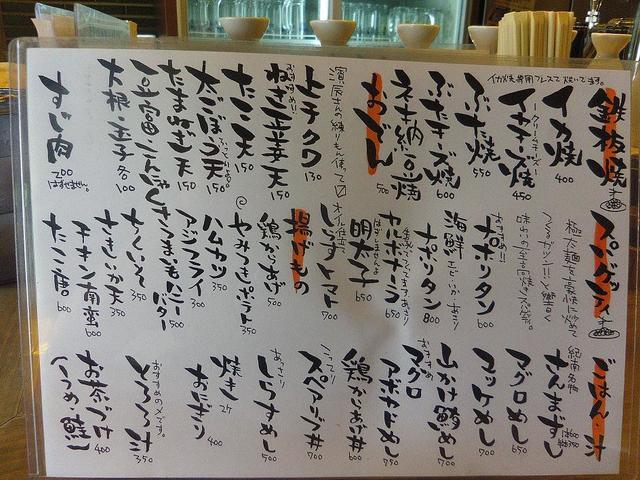 鉄板焼
イカ焼 400
イカ焼専用プレスで焼いてます。
イカチーズ焼 450
ぶた焼 550
ぶたチーズ焼 600
ネギ納豆焼 500
おでん
トチクワ 130
ねぎ生姜天 150
たこ天 150
ごぼう天 150
たまねぎ天 150
豆腐・こんにゃく
大根・玉子 各100
すじ肉 200
スパゲッティ
極太麺を豪快に炒めて
ナポリタン 600
おすすめ!!
海鮮
ナポリタン 800
カルボナーラ 650
明太子 650
しらすトマト 700
オイル仕立
揚げもの
鶏からあげ 500
やみつきポテト 350
ハムカツ 300
アジフライ 350
さつまいもハニーバター 500
ちくいそ 350
さきいか天 350
チキン南蛮 600
たこ唐 600
ごはん・汁
紀南名物
さんまずし
マグロめし 650
マッケめし 700
山かけ鮪めし 700
おすすめ
マグロ
アボカドめし 750
鶏からあげ丼 600
こってり
スペアリブ丼 700
あっさり
しらすめし 500
焼き
おにぎり 400
おすすめの〆です。
とろろ汁 350
お茶づけ 400